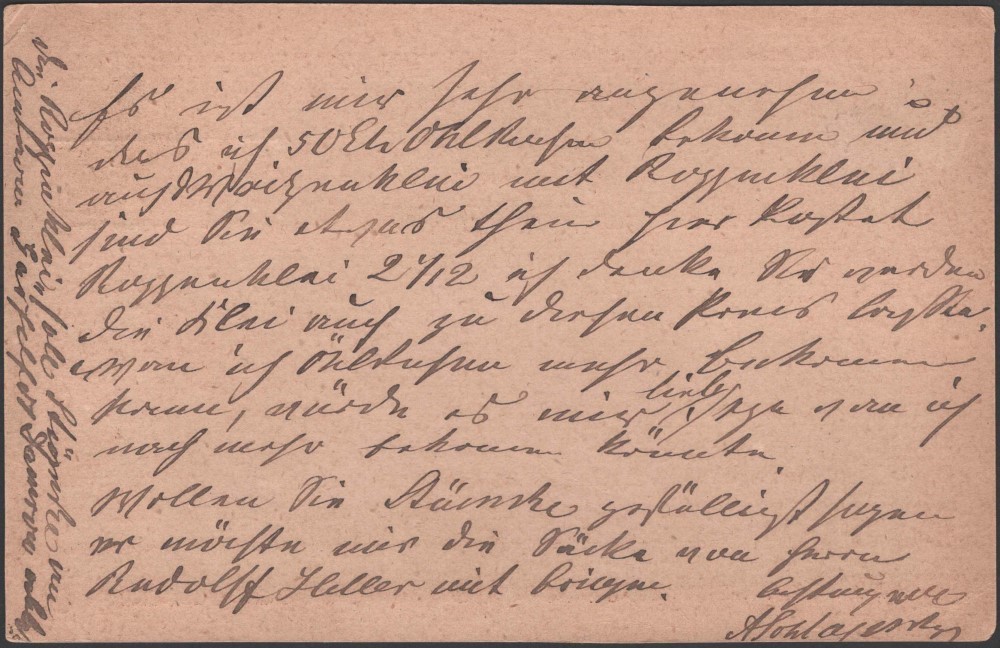 Es ist mir sehr angenehm
das ich 50 Ctr Öhlkuchen bekomm und
auch Waitzenklei mit Roggenklei
sind Sie etwas theur hier kostet
Roggenklei 2 1/12 ich denke Sie werden
die Klei auch zu diesen Preis lassen,
wen ich Öhlkuchen mehr bekommen
kann, würde es mir lieb sein wen ich
noch mehr bekommen könnte.
Wollen Sie Stümcke gefälligst sagen
er möchte mir die Säcke von Herrn
Rudolff Heller mit bringen.
Achtungsvoll
A Schlag
die Roggenklei soll Stümcke von